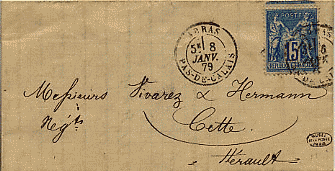 ARRAS
5E 8
JANV.
79
PAS-DE-CALAIS
POSTE
15
Messieurs Vivarez & Hermann
Negts
Cette
Hérault